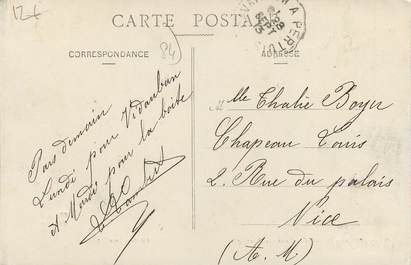 12€
CARTE POSTALE
CORRESPONDANCE
84
ADRESSE
A PERTUI
Pars demain
Lundi pour Vidauban
et Mardi pour la boîte
Mlle Thalie Boyer
Chapeau Louis
2. Rue du palais
Nice
(A. M)